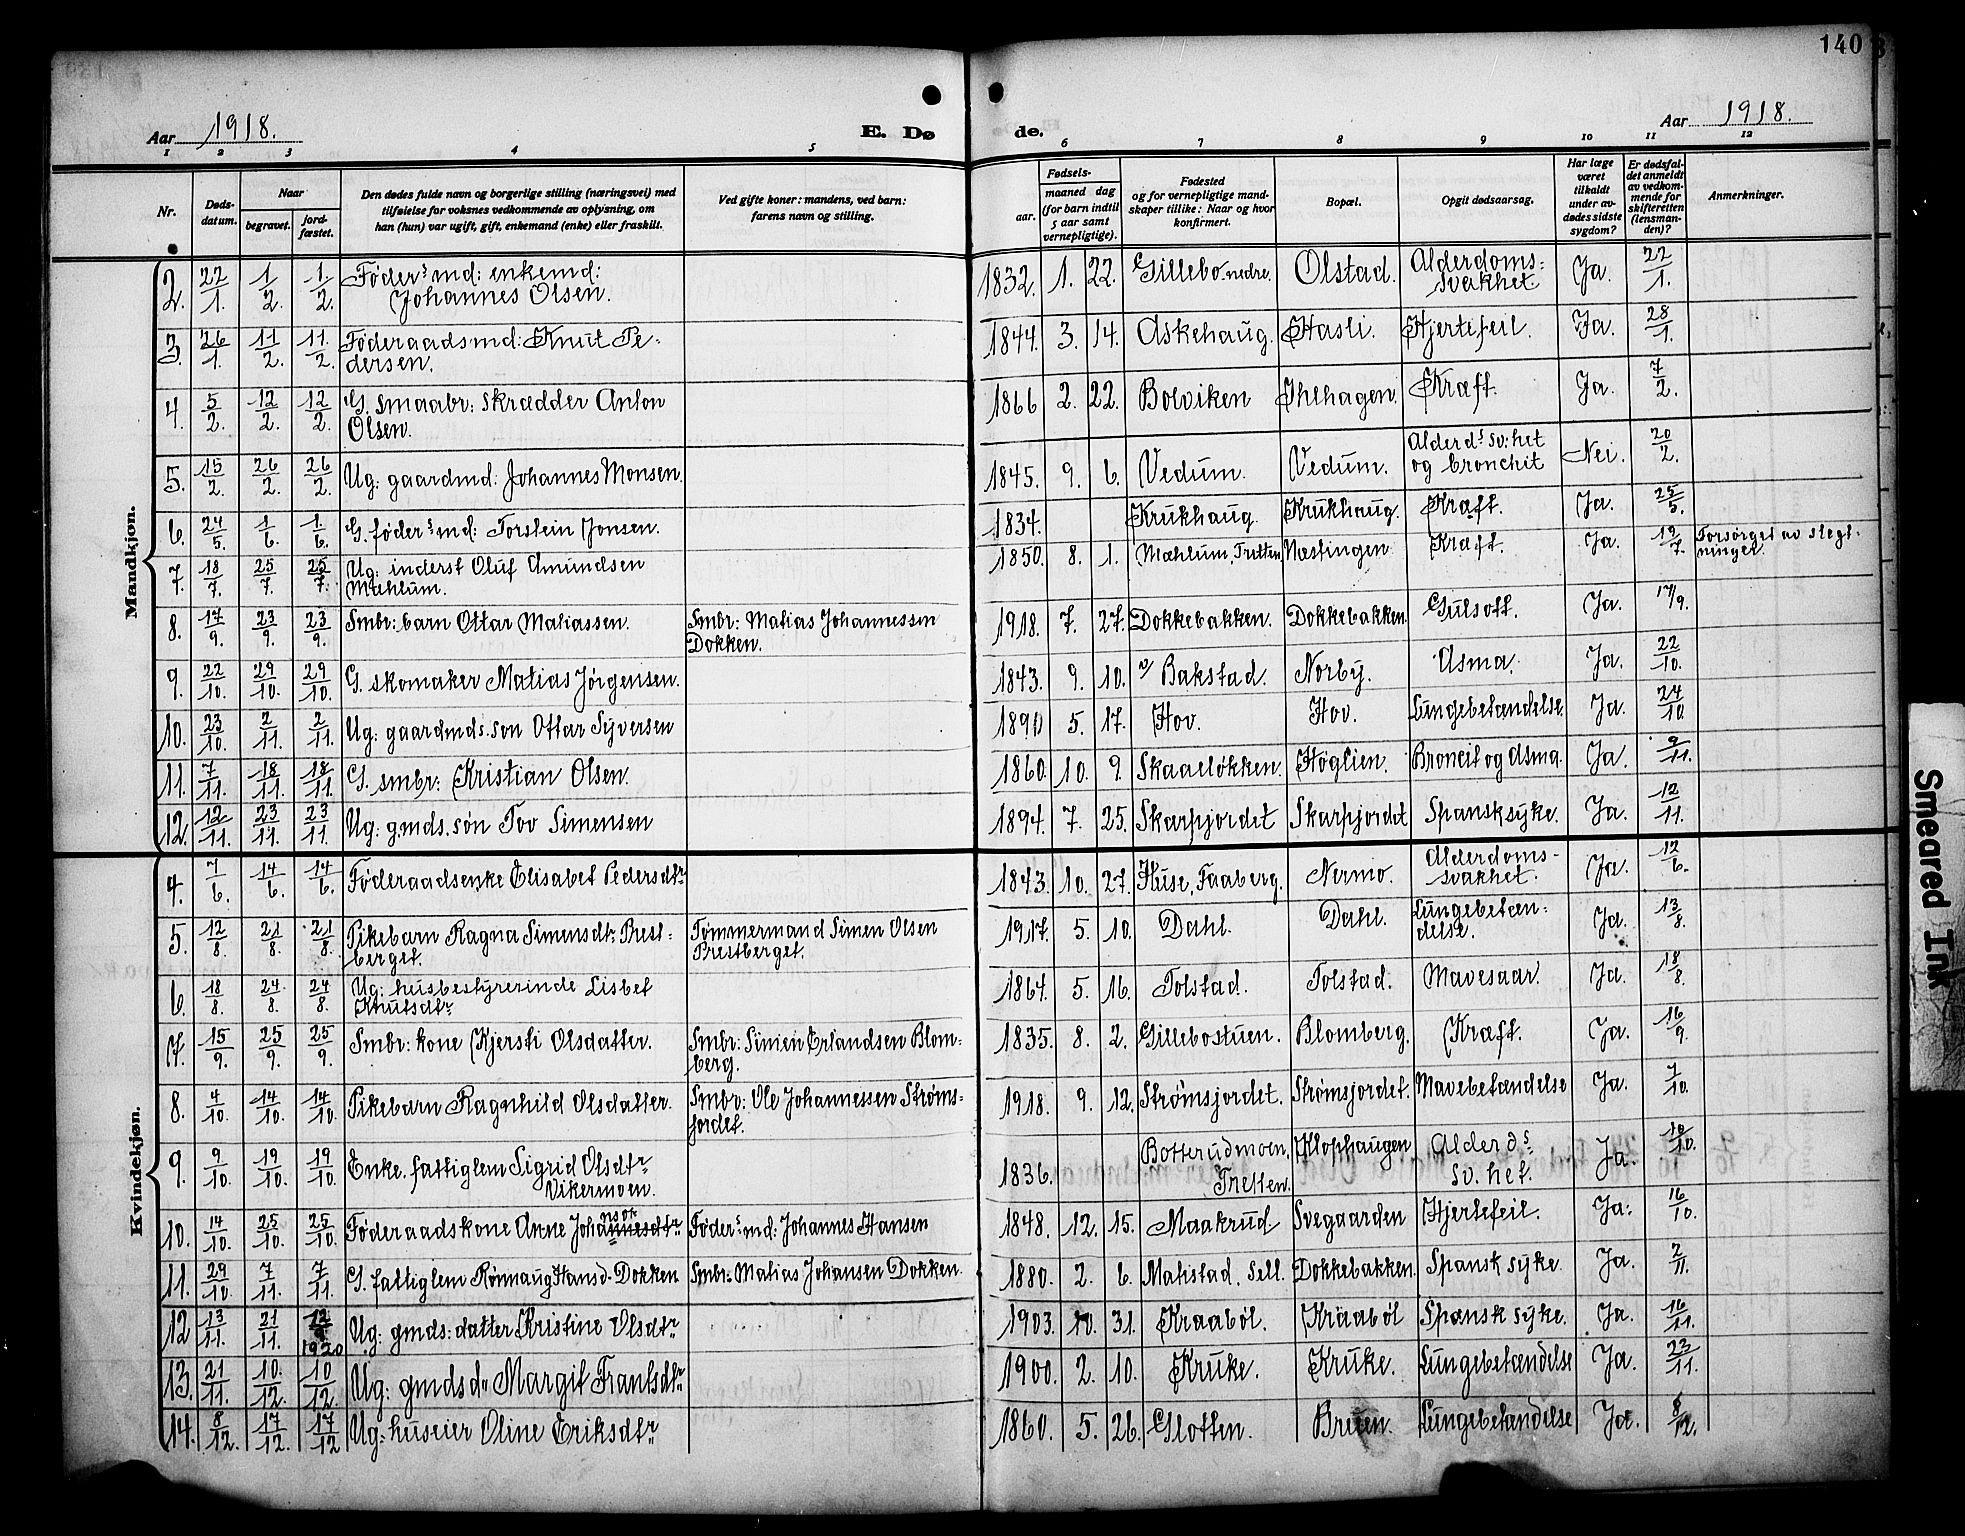 140
Aar 1918.
E. Dø
de.
Aar 1918.
1 2 3 4 5 6 7 8 9 10 11 12
Nr.
Døds-
datum.
Naar
begravet.
jord-
fæstet.
Den dødes fulde navn og borgerlige stilling (næringsvei) med
tilføielse for voksnes vedkommende av oplysning, om
han (hun) var ugift, gift, enkemand (enke) eller fraskilt.
Ved gifte koner: mandens, ved barn:
farens navn og stilling.
Fødsels-
aar.
maaned dag
(for barn indtil
5 aar samt
vernepligtige).
Fødested
og for vernepligtige mand-
skaper tillike: Naar og hvor
konfirmert.
Bopæl.
Opgit dødsaarsag.
Har læge
været
tilkaldt
under av-
dødes sidste
sygdom?
Er dødsfal-
det anmeldt
av vedkom-
mende for
skifteretten
(lensman-
den)?
Anmerkninger.
Mandkjøn.
2. 22/1. 1/2. 1/2. Föder^s md: enkemd:
Johannes Olsen. 1832. 1. 22. Gillebo nedre. Olstad. Alderdoms-
svakhet. Ja. 22/1.
3. 26/1. 11/2. 11/2. Föderaadsmd: Knut Pe-
dersen. 1844. 3. 14. Askehaug. Hasli. Hjertefeil. Ja. 28/1.
4. 5/2. 12/2. 12/2. G. smaabr: skrædder Anton
Olsen. 1866 2. 22. Bolviken Ihlhagen. Kræft. Ja. 7/2.
5. 15/2. 26/2. 26/2. Ug: gaardmd: Johannes Monsen. 1845. 9. 6. Vedum. Vedum. Alderd^s sv:het
og bronchit Nei. 20/2.
6. 24/5. 1/6. 1/6. G. föder^s md: Torstein Jonsen. 1834. Krukhaug. Krukhaug. Kræft. Ja. 25/5.
7. 18/7. 25/7. 25/7. Ug: inderst Oluf Amundsen
Mæhlum. 1850. 8. 1. Mæhlum, Tretten Næstingen Kræft. Ja. 19/7. Forsørget av slegt-
ninger.
8. 17/9. 23/9. 23/9. Smbr: barn Ottar Matiassen. Smbr: Matias Johannessen
Dokken. 1918. 7. 27. Dokkebakken. Dokkebakken. Gulsott. Ja. 17/9.
9. 22/10. 29/10. 29/10. G. skomaker Matias Jørgensen. 1843. 9. 10. v/ Bakstad. Norby. Asma. Ja. 22/10.
10. 23/10. 2/11. 2/11. Ug: gaardmds. søn Ottar Syversen 1890 5. 17. Hov. Hov. Lungebetændelse. Ja. 24/10.
11. 7/11. 18/11. 18/11. G. smbr: Kristian Olsen. 1860. 10. 9. Skaaeløkken. Höglien. Broncit og Asma. Ja. 9/11.
12. 12/11. 23/11. 23/11. Ug: gmds. søn Tov Simensen 1894. 7. 25. Skarpjordet Skarpjordet Spansksyke. Ja. 12/11.
Kvindekjøn.
4. 7/6. 14/6. 14/6. Föderaadsenke Elisabet Pedersdt^r 1843. 10. 27. Huse, Faaberg. Nermo. Alderdoms-
svakhet. Ja. 12/6.
5. 12/8. 21/8. 21/8. Pikebarn Ragna Simensdt^r Prest-
berget. Tømmermand Simen Olsen
Prestberget. 1917. 5. 10. Dahl. Dahl. Lungebetæn-
delse. Ja. 13/8.
6. 18/8. 24/8. 24/8. Ug: husbestyrerinde Lisbet
Knutsdt^r 1864. 5. 16. Tolstad. Tolstad. Mavesaar. Ja. 18/8.
7. 15/9. 25/9. 25/9. Smbr: kone Kjersti Olsdatter. Smbr: Simen Erlandsen Blom-
berg. 1835. 8. 2. Gillebostuen. Blomberg. Kræft. Ja. 16/9.
8. 4/10. 14/10. 14/10. Pikebarn Ragnhild Olsdatter. Smbr: Ole Johannessen Strøms-
jordet. 1918. 9. 12. Strømsjordet. Strømsjordet. Mavebetændelse Ja. 7/10.
9. 9/10. 19/10. 19/10. Enke. fattiglem Sigrid Olsdt^r
Vikermoen. 1836. Botterudmoen,
Tretten. Klophaugen Alderd^s
sv.het. Ja. 10/10.
10. 14/10. 25/10. 25/10. Föderaadskone Anne Johannesdt^r Föder^s md: Johannes Hansen 1848. 12. 15. Maakrud Svegaarden Hjertefeil. Ja. 16/10.
11. 29/10. 7/11. 7/11. G. fattiglem Rønnaug Hansd. Dokken Smbr: Matias Johansen Dokken. 1880. 2. 6. Mahstad. Sell. Dokkebakken. Spansk syke. Ja. 2/11.
12 13/11. 21/11. 1920 Ug: gmds: datter Kristine Olsdt^r 1903. 10. 31. Kraabøl. Kraabøl Spansk syke. Ja. 16/11.
13. 21/11. 10/12. 10/12. Ug: gmdsd^r Margit Frantsdt^r 1900. 2. 10. Kruke. Kruke. Lungebetændelse Ja. 23/11.
14. 8/12. 17/12. 17/12 Ug: huseier Oline Eriksdt^r 1860. 5. 26. Glotten. Bruen. Lungebetændelse Ja. 8/12.
Smeared Ink